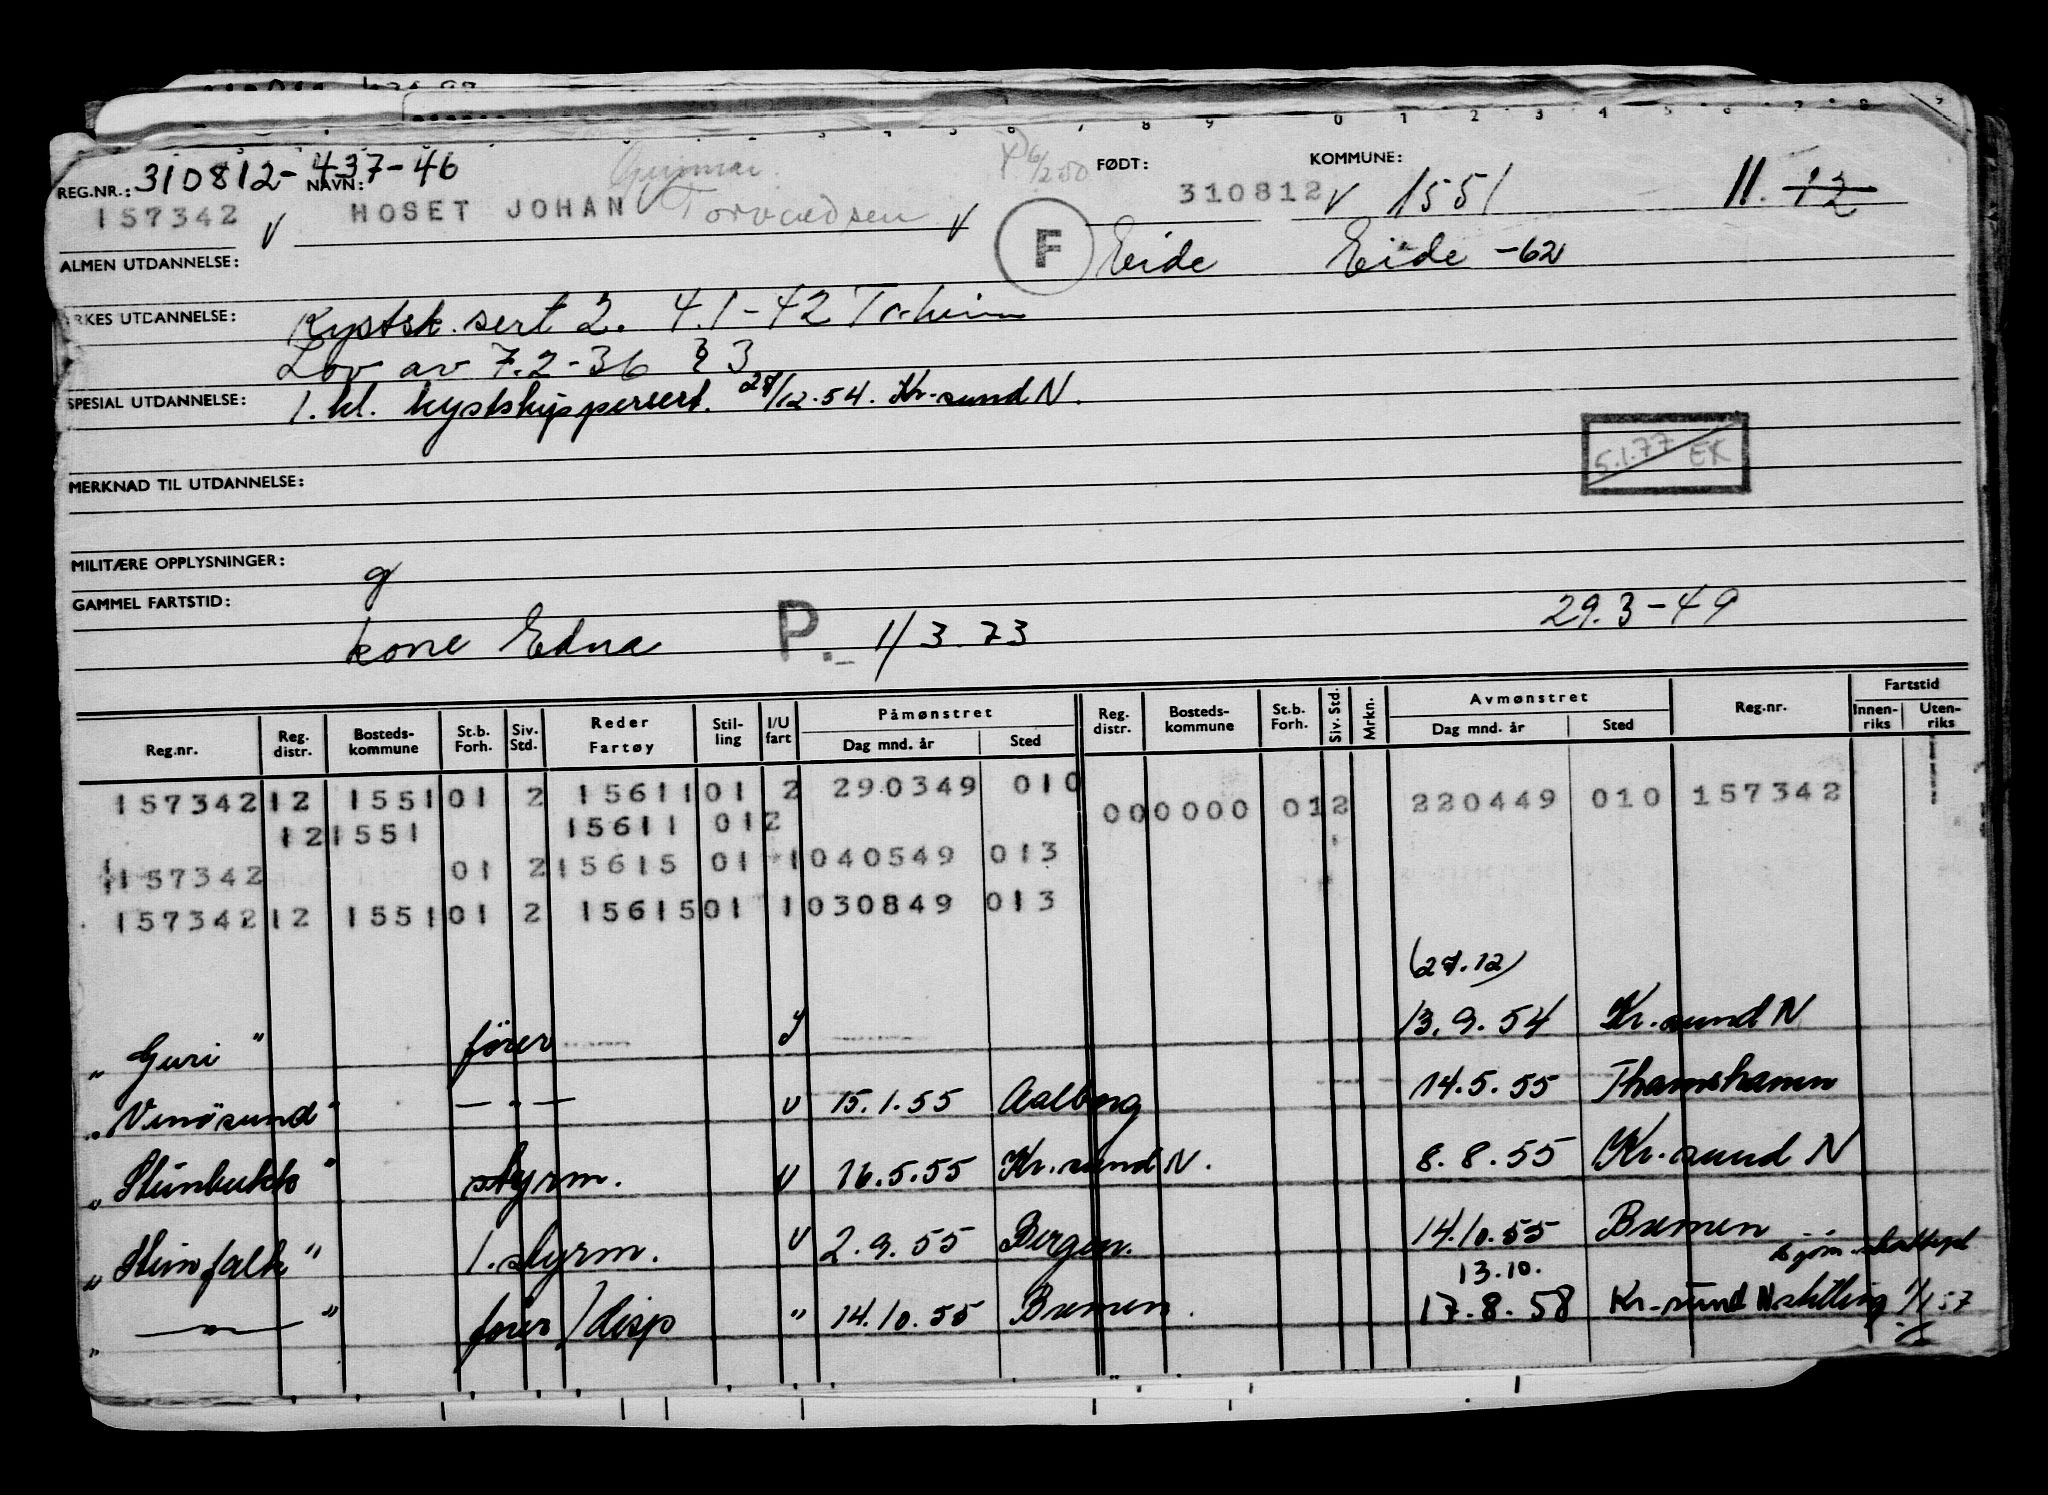 310812-437-46 Gunnar
REG.NR.: NAVN: FØDT: KOMMUNE:
157342 V HOSET JOHAN V Torvaldsen V 310812 V 1551 11. 12
ALMEN UTDANNELSE: F Eide Eide -62
YRKES UTDANNELSE: Kystsk. sert 2. 4.1-42 Tr.heim
Lov av 7.2-36 § 3
SPESIAL UTDANNELSE: 1. kl. kystskippersert. 27/12.54. Kr.sund N.
5.1.77 EK
MERKNAD TIL UTDANNELSE:
MILITÆRE OPPLYSNINGER: g
GAMMEL FARTSTID:
kone Edna P. 1/3.73 29.3-49
Reg.nr. Reg. distr. Bosteds-kommune St.b. Forh. Siv. Std. Reder Fartøy Stil-ling I/U fart Påmønstret Dag mnd. år Sted Reg. distr. Bosteds-kommune St.b. Forh. Siv. Std. Mrkn. Avmønstret Dag mnd. år Sted Reg.nr. Fartstid Innen-riks Uten-riks
157342 12 1551 01 2 15611 01 2 290349 010 000000 01 2 220449 010 157342
12 1551 15611 01 2
157342 01 2 15615 01 1 040549 013
157342 12 1551 01 2 15615 01 1 030849 013
(27.12)
"Guri" fører 13.9.54 Kr.sund N
"Vinøsund" — " — U 15.1.55 Aalborg 14.5.55 Thamshamn
"Stenbukk" styrm. U 16.5.55 Kr.sund N. 8.8.55 Kr.sund N
"Stenfalk" 1. styrm. U 2.9.55 Bergen. 14.10.55 Bremen
13.10.
" — " — " fører/disp " 14.10.55 Bremen. 17.8.58 Kr.sund N stilling 1/1 57